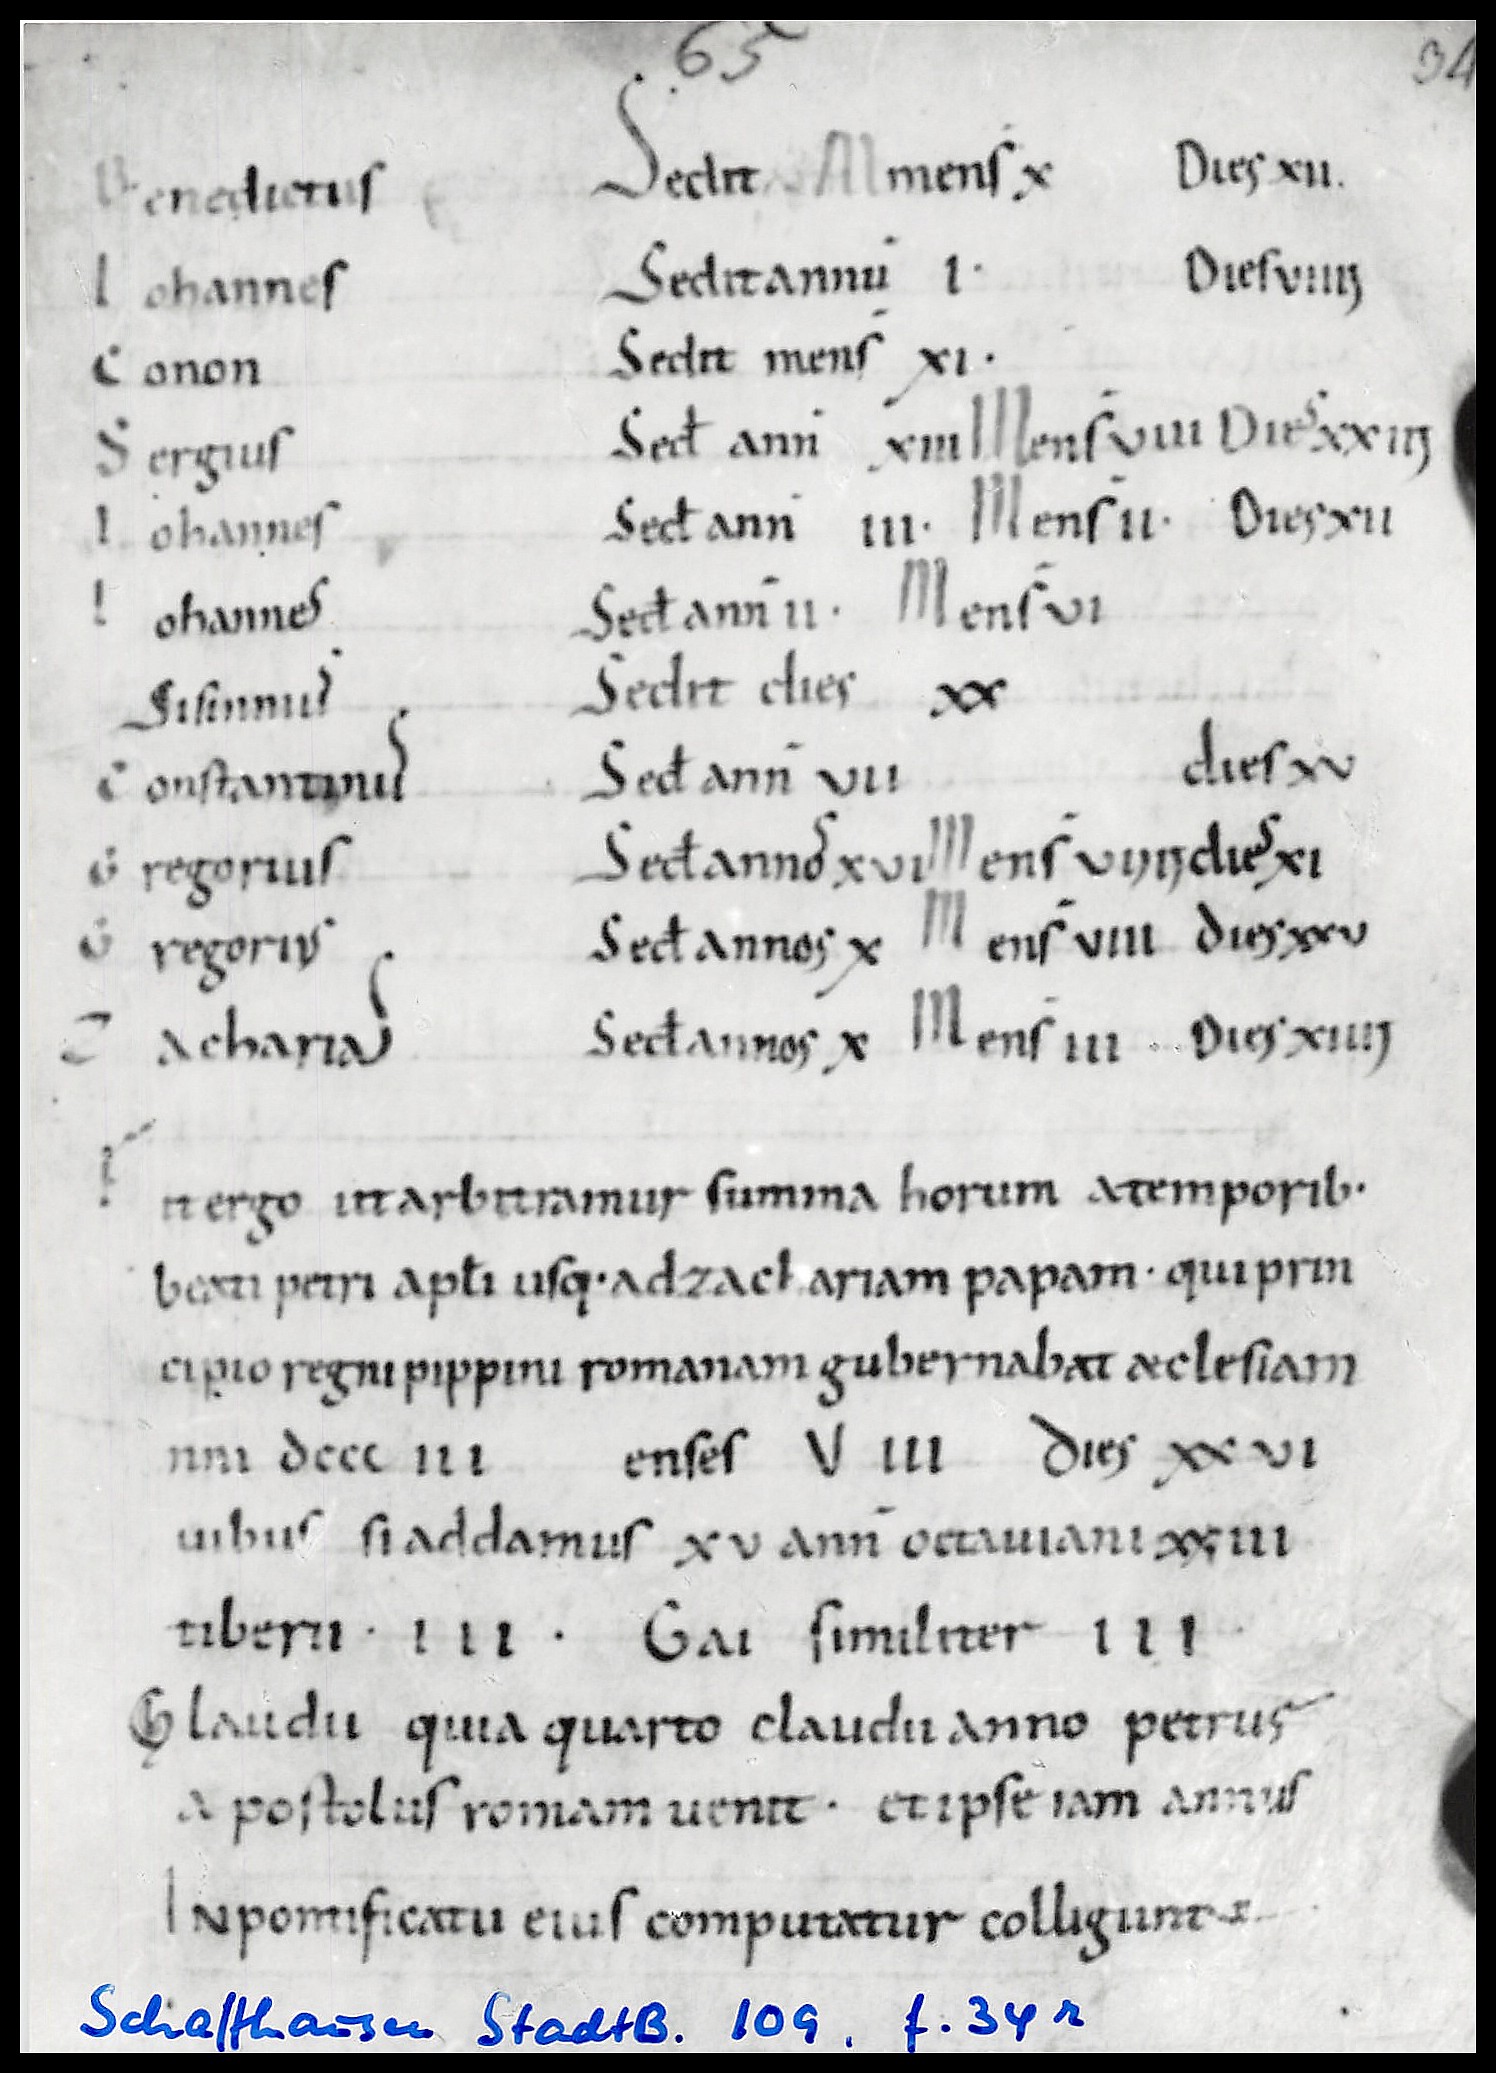 65
34
Benedictus Sedit Mens̄ x Dies xii.
Iohannes Sedit annū i. Dies viiii
Conon Sedit mens̄ xi.
Sergius Sed̄ ann̄ xiii Mens̄ viii Dies xxiii
Iohannes Sed̄ ann̄ iii. Mens̄ ii. Dies xii
Iohannes Sed̄ ann̄ ii. Mens̄ vi
Sisinnius Sedit dies xx
Constantinus Sed̄ ann̄ vii dies xv
Gregorius Sed̄ annos xvi Mens̄ viiii dies xi
Gregorius Sed̄ annos x Mens̄ viii dies xxv
Zacharias Sed̄ annos x Mens̄ iii Dies xiiii
Fit ergo ut arbitramur summa horum a temporib·
beati petri apłi usq· ad zachariam papam· qui prin
cipio regni pippini romanam gubernabat æclesiam
nni dccc iii enses V iii dies xxvi
uibus si addamus xv ann̄ octauiani xxiii
tiberii · iii · Gai similiter iii
Claudii quia quarto claudii anno petrus
apostolus romam uenit · et ipse iam annus
In pontificatu eius computatur colligunt
Schaffhausen StadtB. 109. f. 34 r